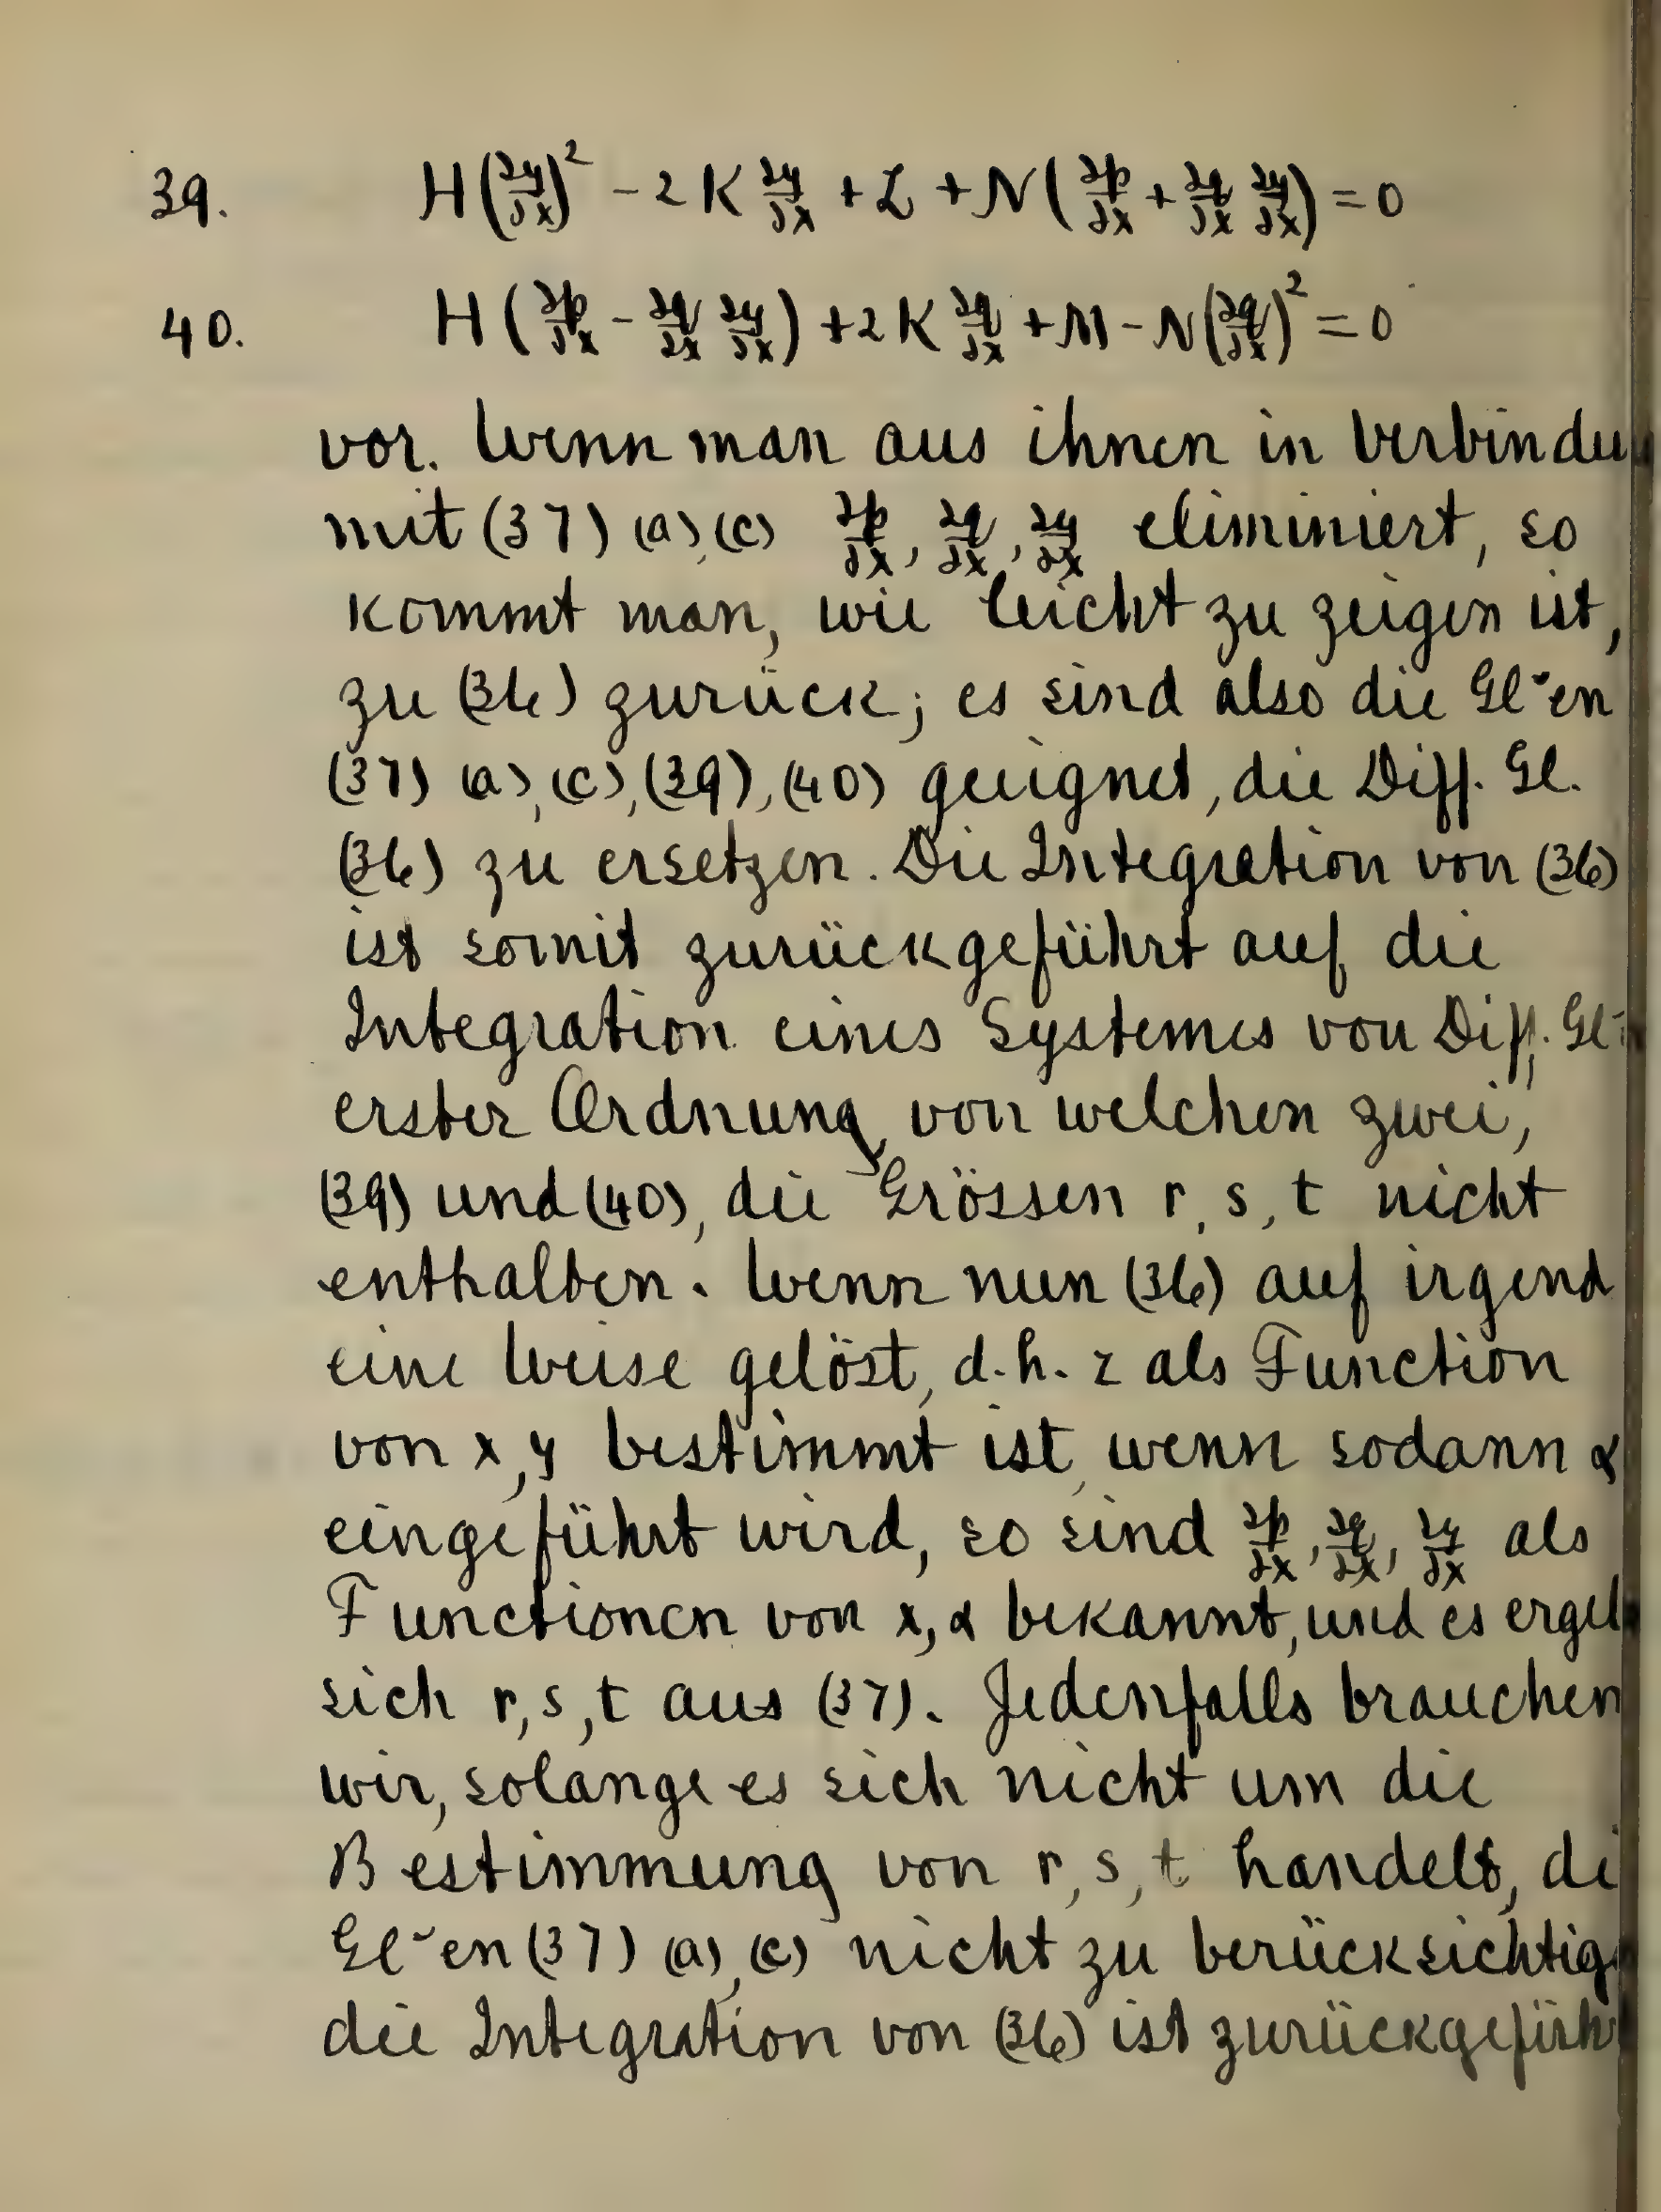 39. H(∂y/∂x)² - 2K ∂y/∂x + L + N(∂p/∂x + ∂q/∂x ∂y/∂x) = 0
40. H(∂p/∂x - ∂q/∂x ∂y/∂x) + 2K ∂q/∂x + M - N(∂q/∂x)² = 0
vor. Wenn man aus ihnen in Verbindu
mit (37) (a), (c) ∂p/∂x, ∂q/∂x, ∂y/∂x eliminiert, so
kommt man, wie leicht zu zeigen ist,
zu (36) zurück; es sind also die Gl˘en
(37) (a), (c), (39), (40) geeignet, die Diff. Gl.
(36) zu ersetzen. Die Integration von (36)
ist somit zurückgeführt auf die
Integration eines Systemes von Diff. Gl
erster Ordnung, von welchen zwei,
(39) und (40), die Grössen r, s, t nicht
enthalten. Wenn nun (36) auf irgend
eine Weise gelöst, d.h. z als Function
von x, y bestimmt ist, wenn sodann α
eingeführt wird, so sind ∂p/∂x, ∂q/∂x, ∂y/∂x als
Functionen von x, α bekannt, und es ergeb
sich r, s, t aus (37). Jedenfalls brauchen
wir, solange es sich nicht um die
Bestimmung von r, s, t handelt, di
Gl˘en (37) (a), (c) nicht zu berücksichtig
die Integration von (36) ist zurückgeführ